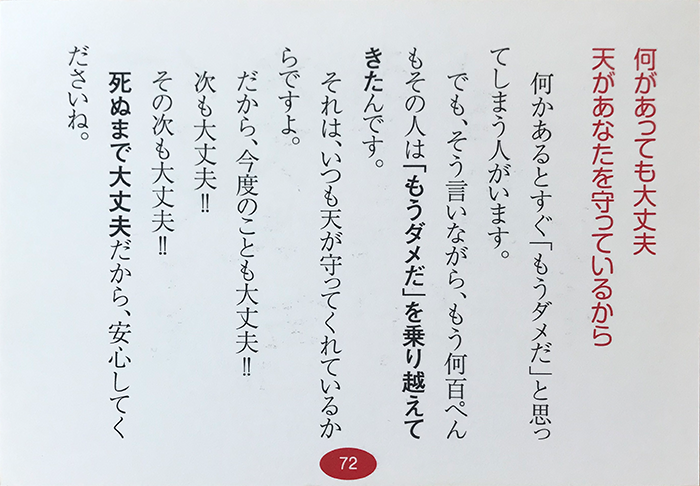 何があっても大丈夫
天があなたを守っているから
何かあるとすぐ「もうダメだ」と思っ
てしまう人がいます。
でも、そう言いながら、もう何百ぺん
もその人は「もうダメだ」を乗り越えて
きたんです。
それは、いつも天が守ってくれているか
らですよ。
だから、今度のことも大丈夫!!
次も大丈夫!!
その次も大丈夫!!
死ぬまで大丈夫だから、安心してく
ださいね。
72